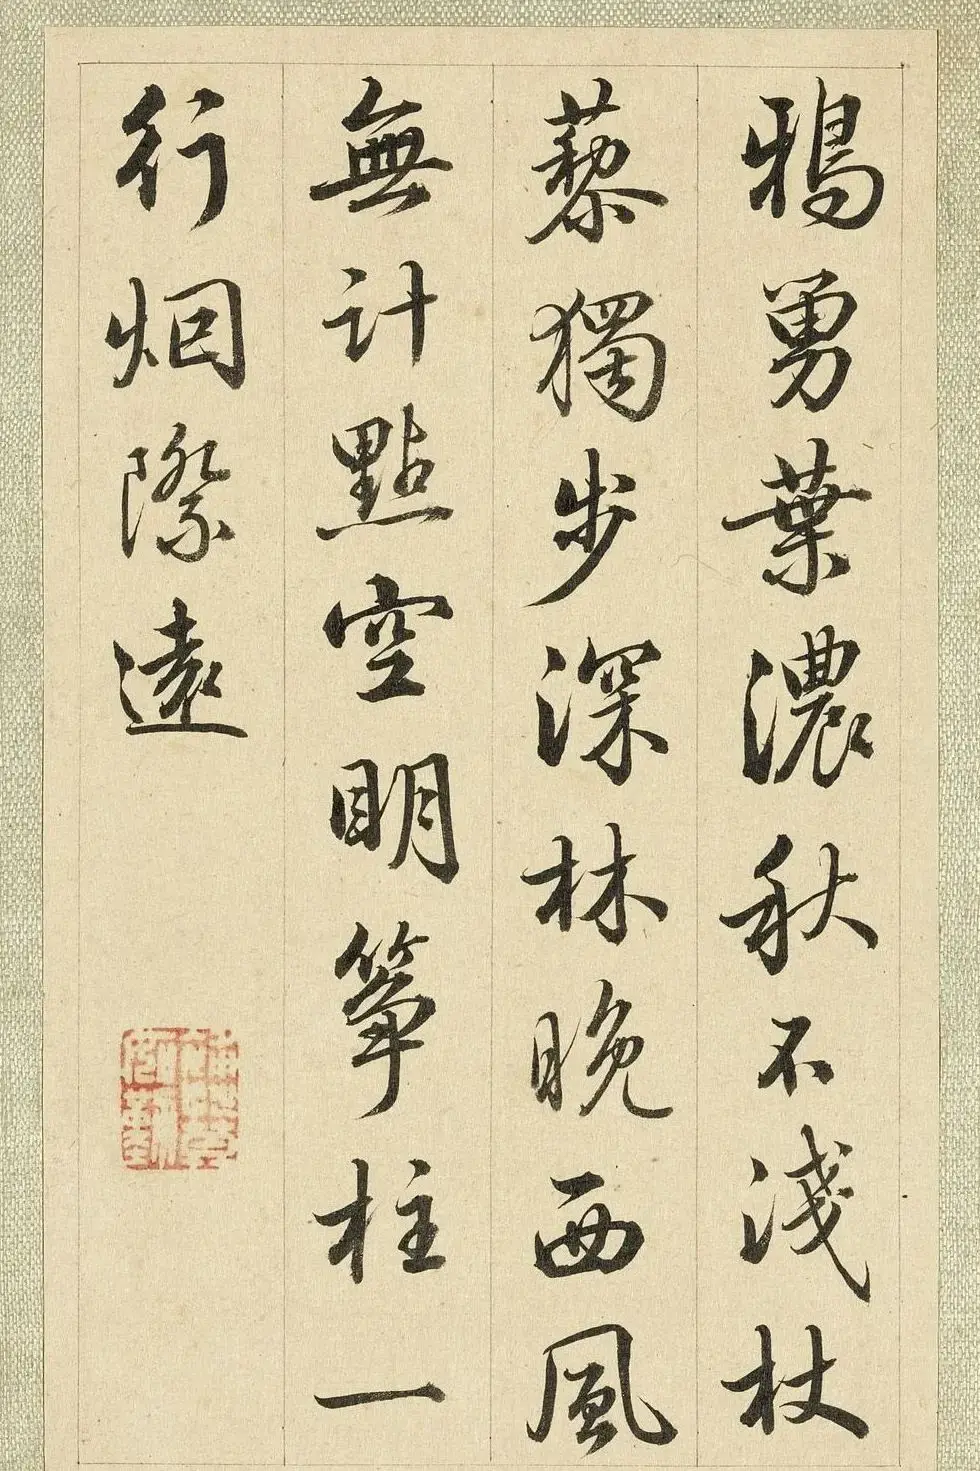 鴉舅葉濃秋不淺杖
藜獨步深林晚西風
無計點空明筝柱一
行烟際遠